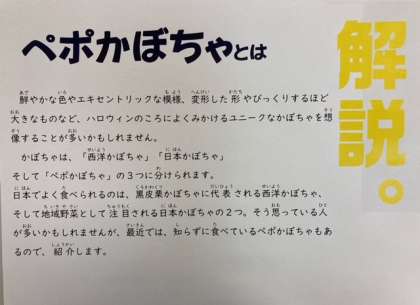 ペポかぼちゃとは
解説。
鮮やかな色やエキセントリックな模様、変形した形やびっくりするほど
大きなものなど、ハロウィンのころによくみかけるユニークなかぼちゃを想
像することが多いかもしれません。
かぼちゃは、「西洋かぼちゃ」「日本かぼちゃ」
そして"ペポかぼちゃ"の3つに分けられます。
日本でよく食べられるのは、黒皮栗かぼちゃに代表される西洋かぼちゃ、
そして地域野菜として注目される日本かぼちゃの2つ。そう思っている人
が多いかもしれませんが、最近では、知らずに食べているペポかぼちゃもあ
るので、紹介します。